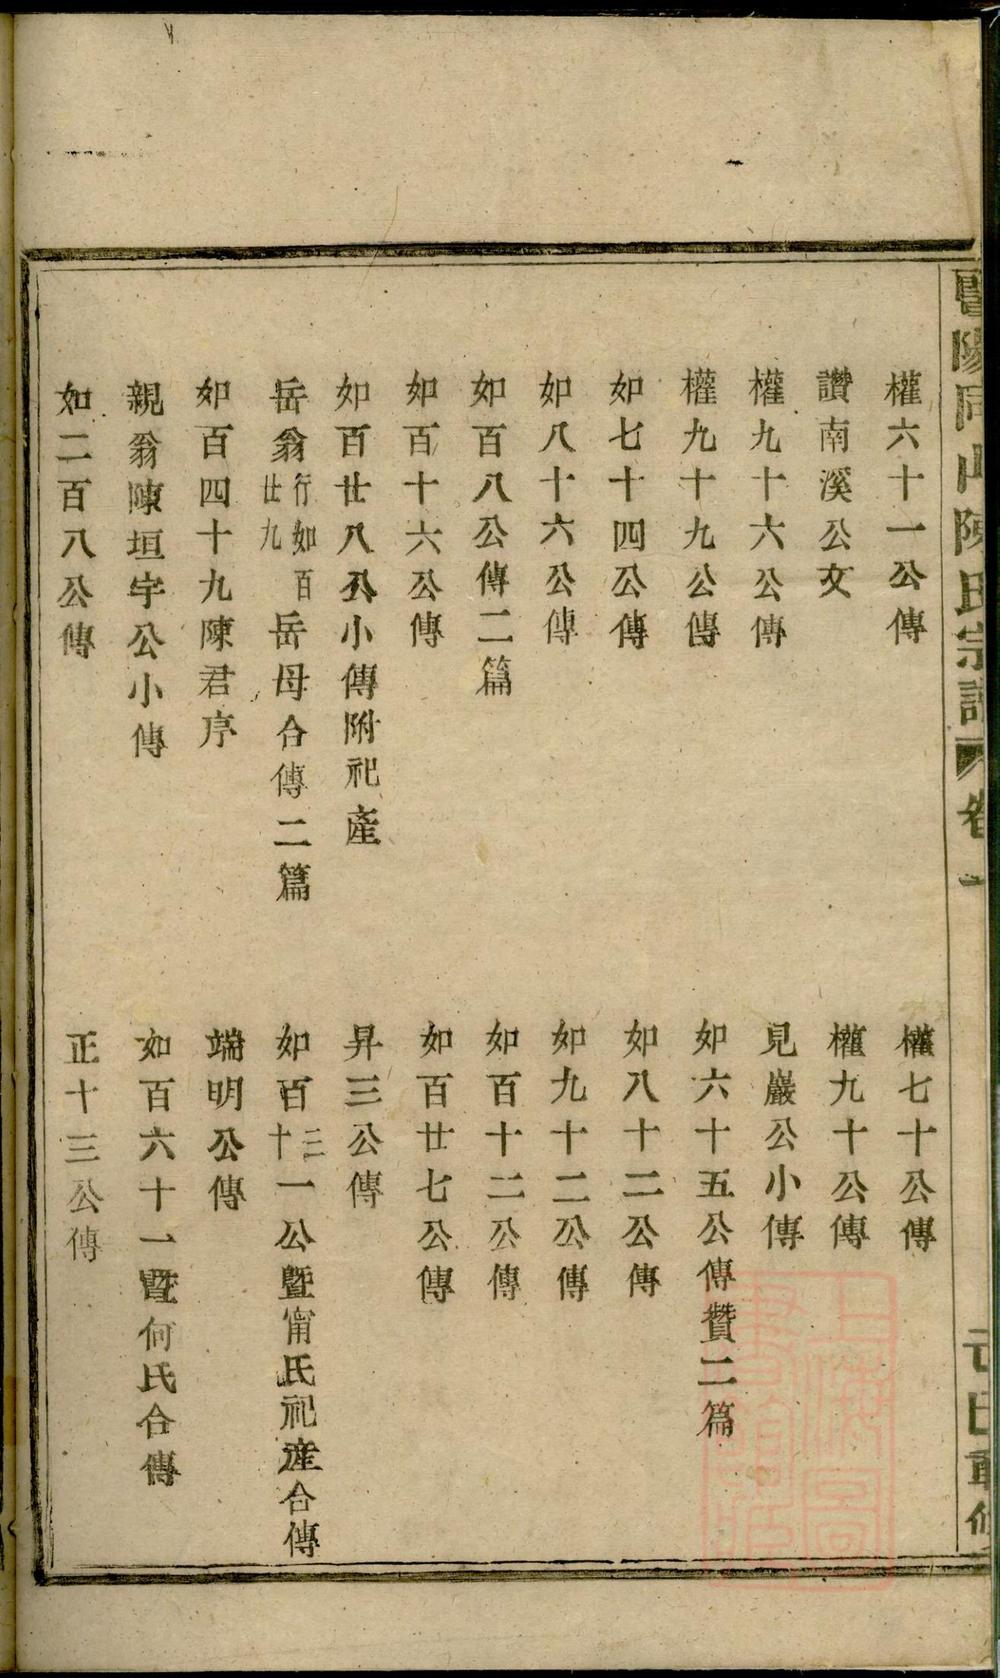 暨陽同山陳氏宗譜 卷一
權六十一公傳 權七十公傳
讚南溪公文 權九十公傳
權九十六公傳 見巖公小傳
權九十九公傳 如六十五公傳贊二篇
如七十四公傳 如八十二公傳
如八十六公傳 如九十二公傳
如百八公傳二篇 如百十二公傳
如百十六公傳 如百廿七公傳
如百廿八公小傳附祀產 昇三公傳
岳翁行如百廿九岳母合傳二篇 如百三十一公暨甯氏祀產合傳
如百四十九陳君序 端明公傳
親翁陳垣宇公小傳 如百六十一暨何氏合傳
如二百八公傳 正十三公傳